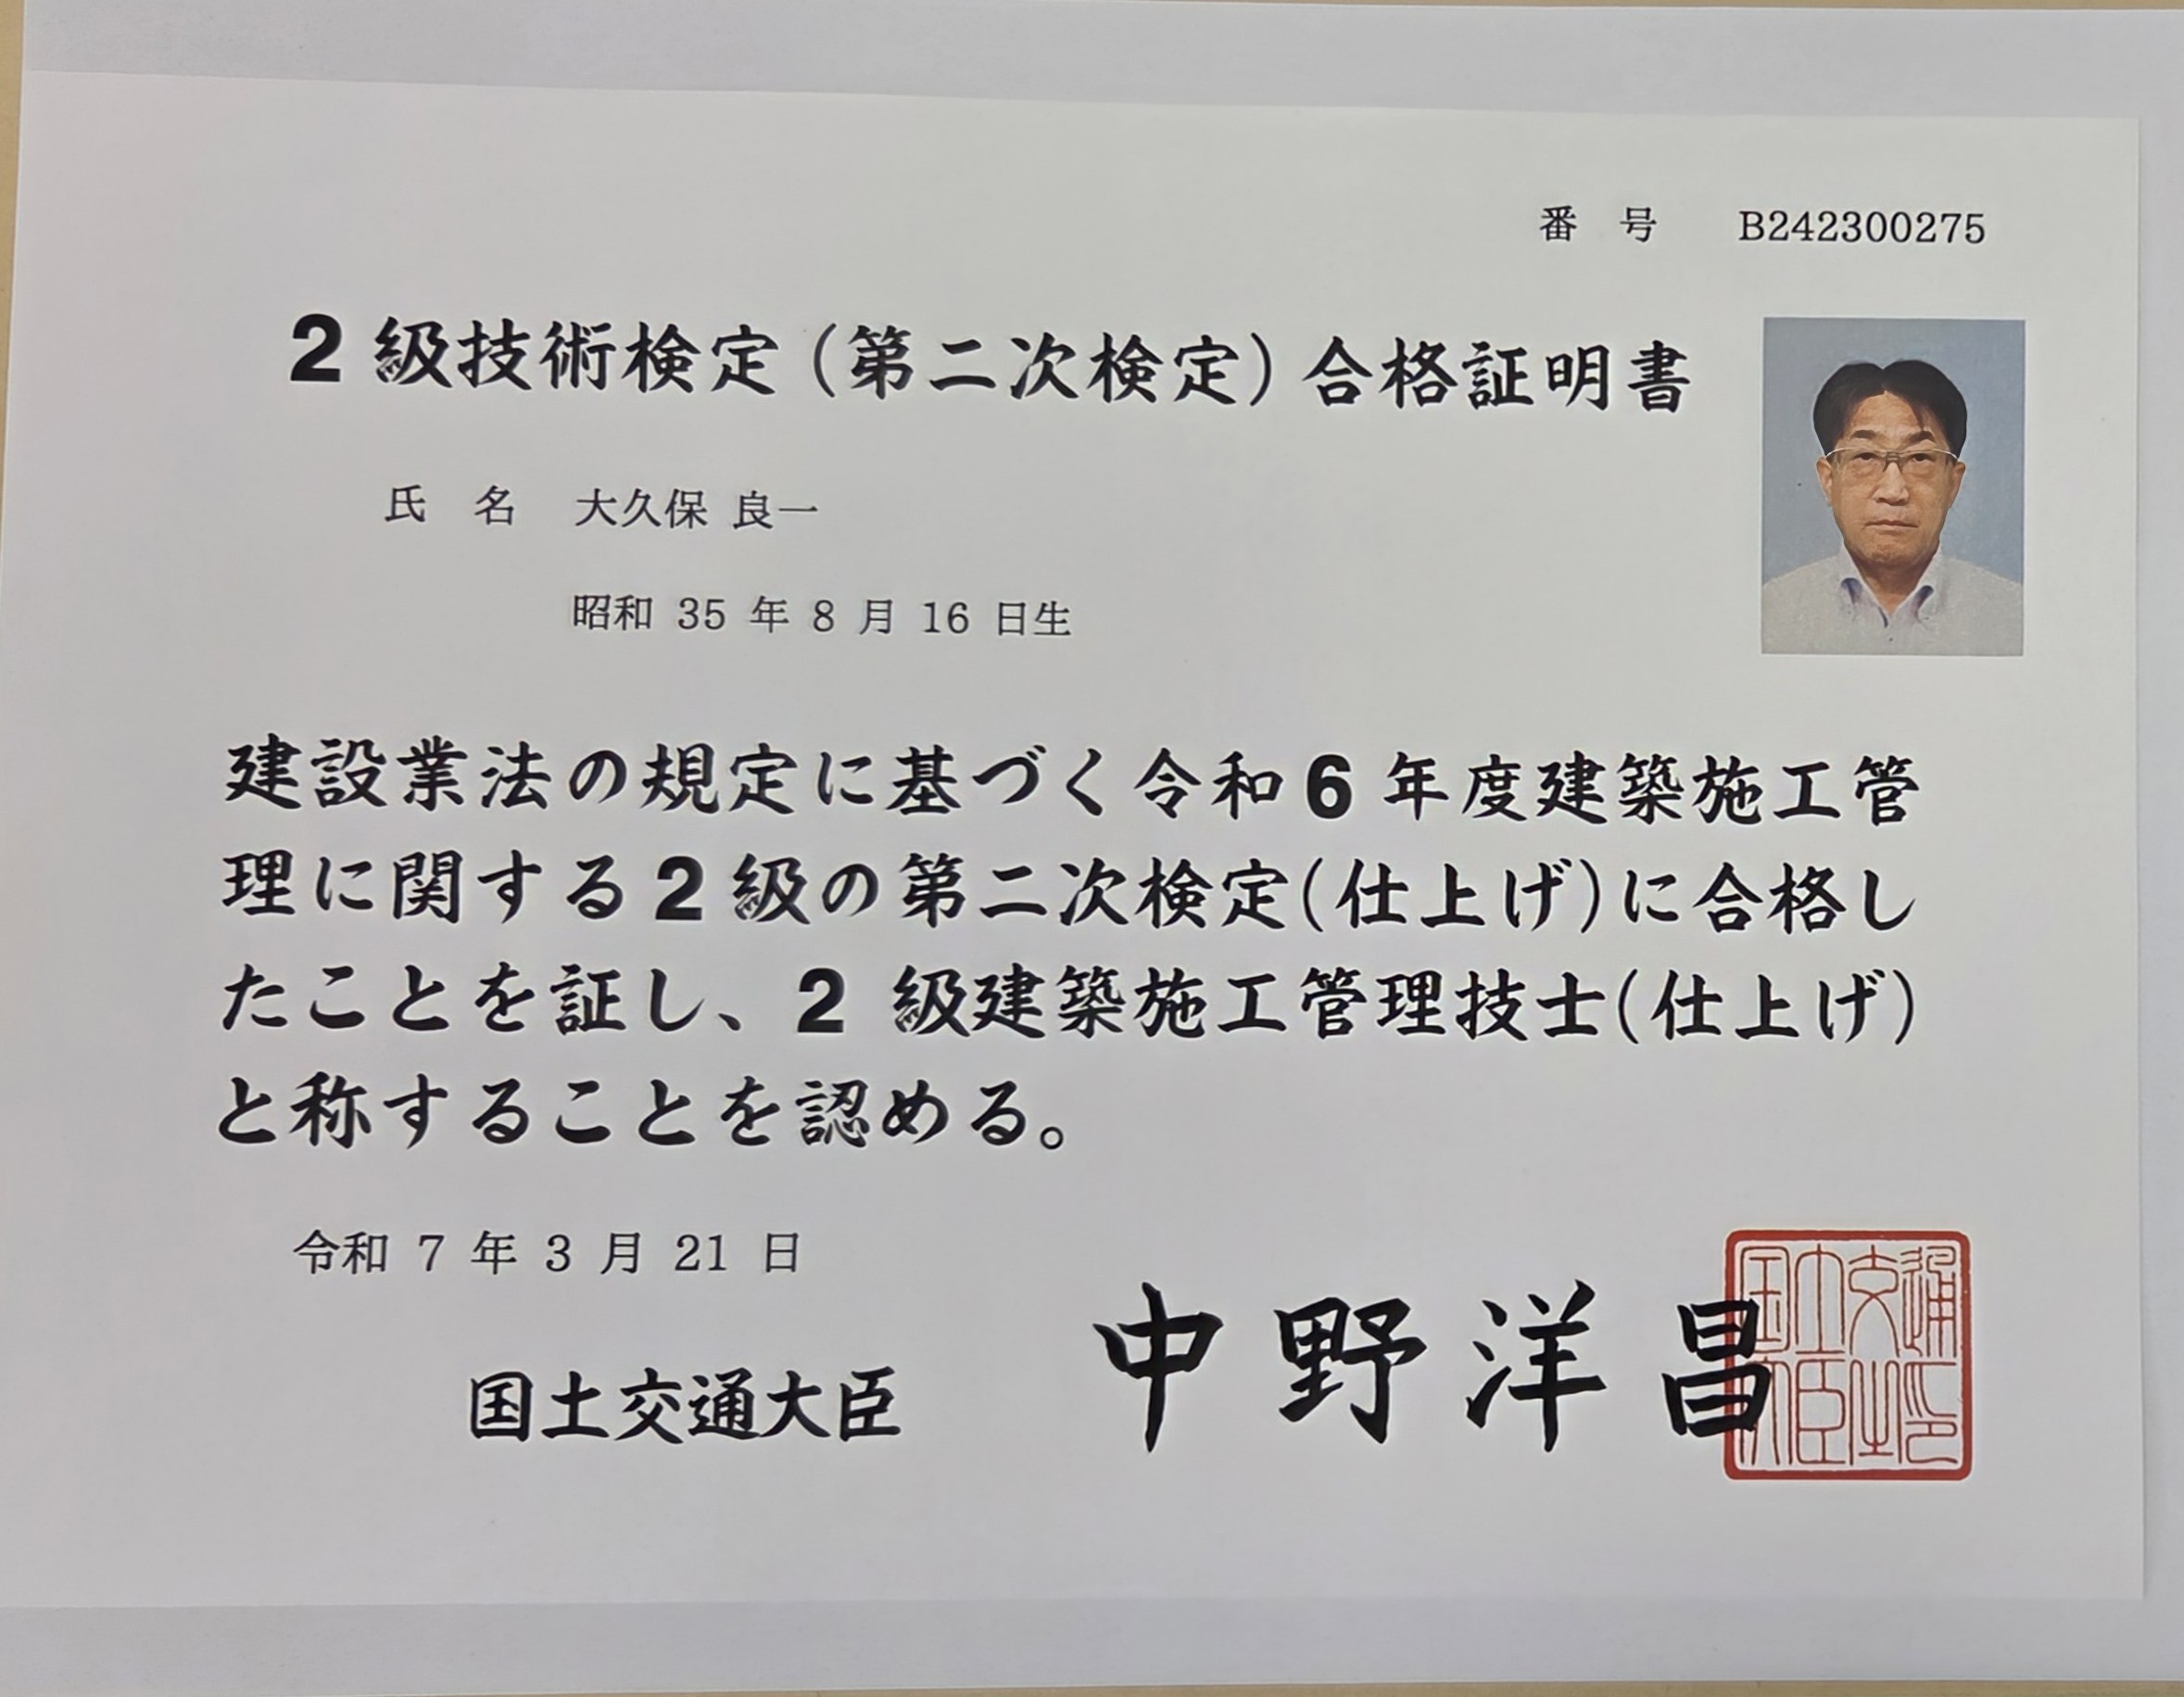 番号 B242300275
2級技術検定(第二次検定)合格証明書
氏名 大久保 良一
昭和 35 年 8 月 16 日生
建設業法の規定に基づく令和6年度建築施工管
理に関する2級の第二次検定(仕上げ)に合格し
たことを証し、2 級建築施工管理技士(仕上げ)
と称することを認める。
令和 7 年 3 月 21 日
国土交通大臣 中野洋昌